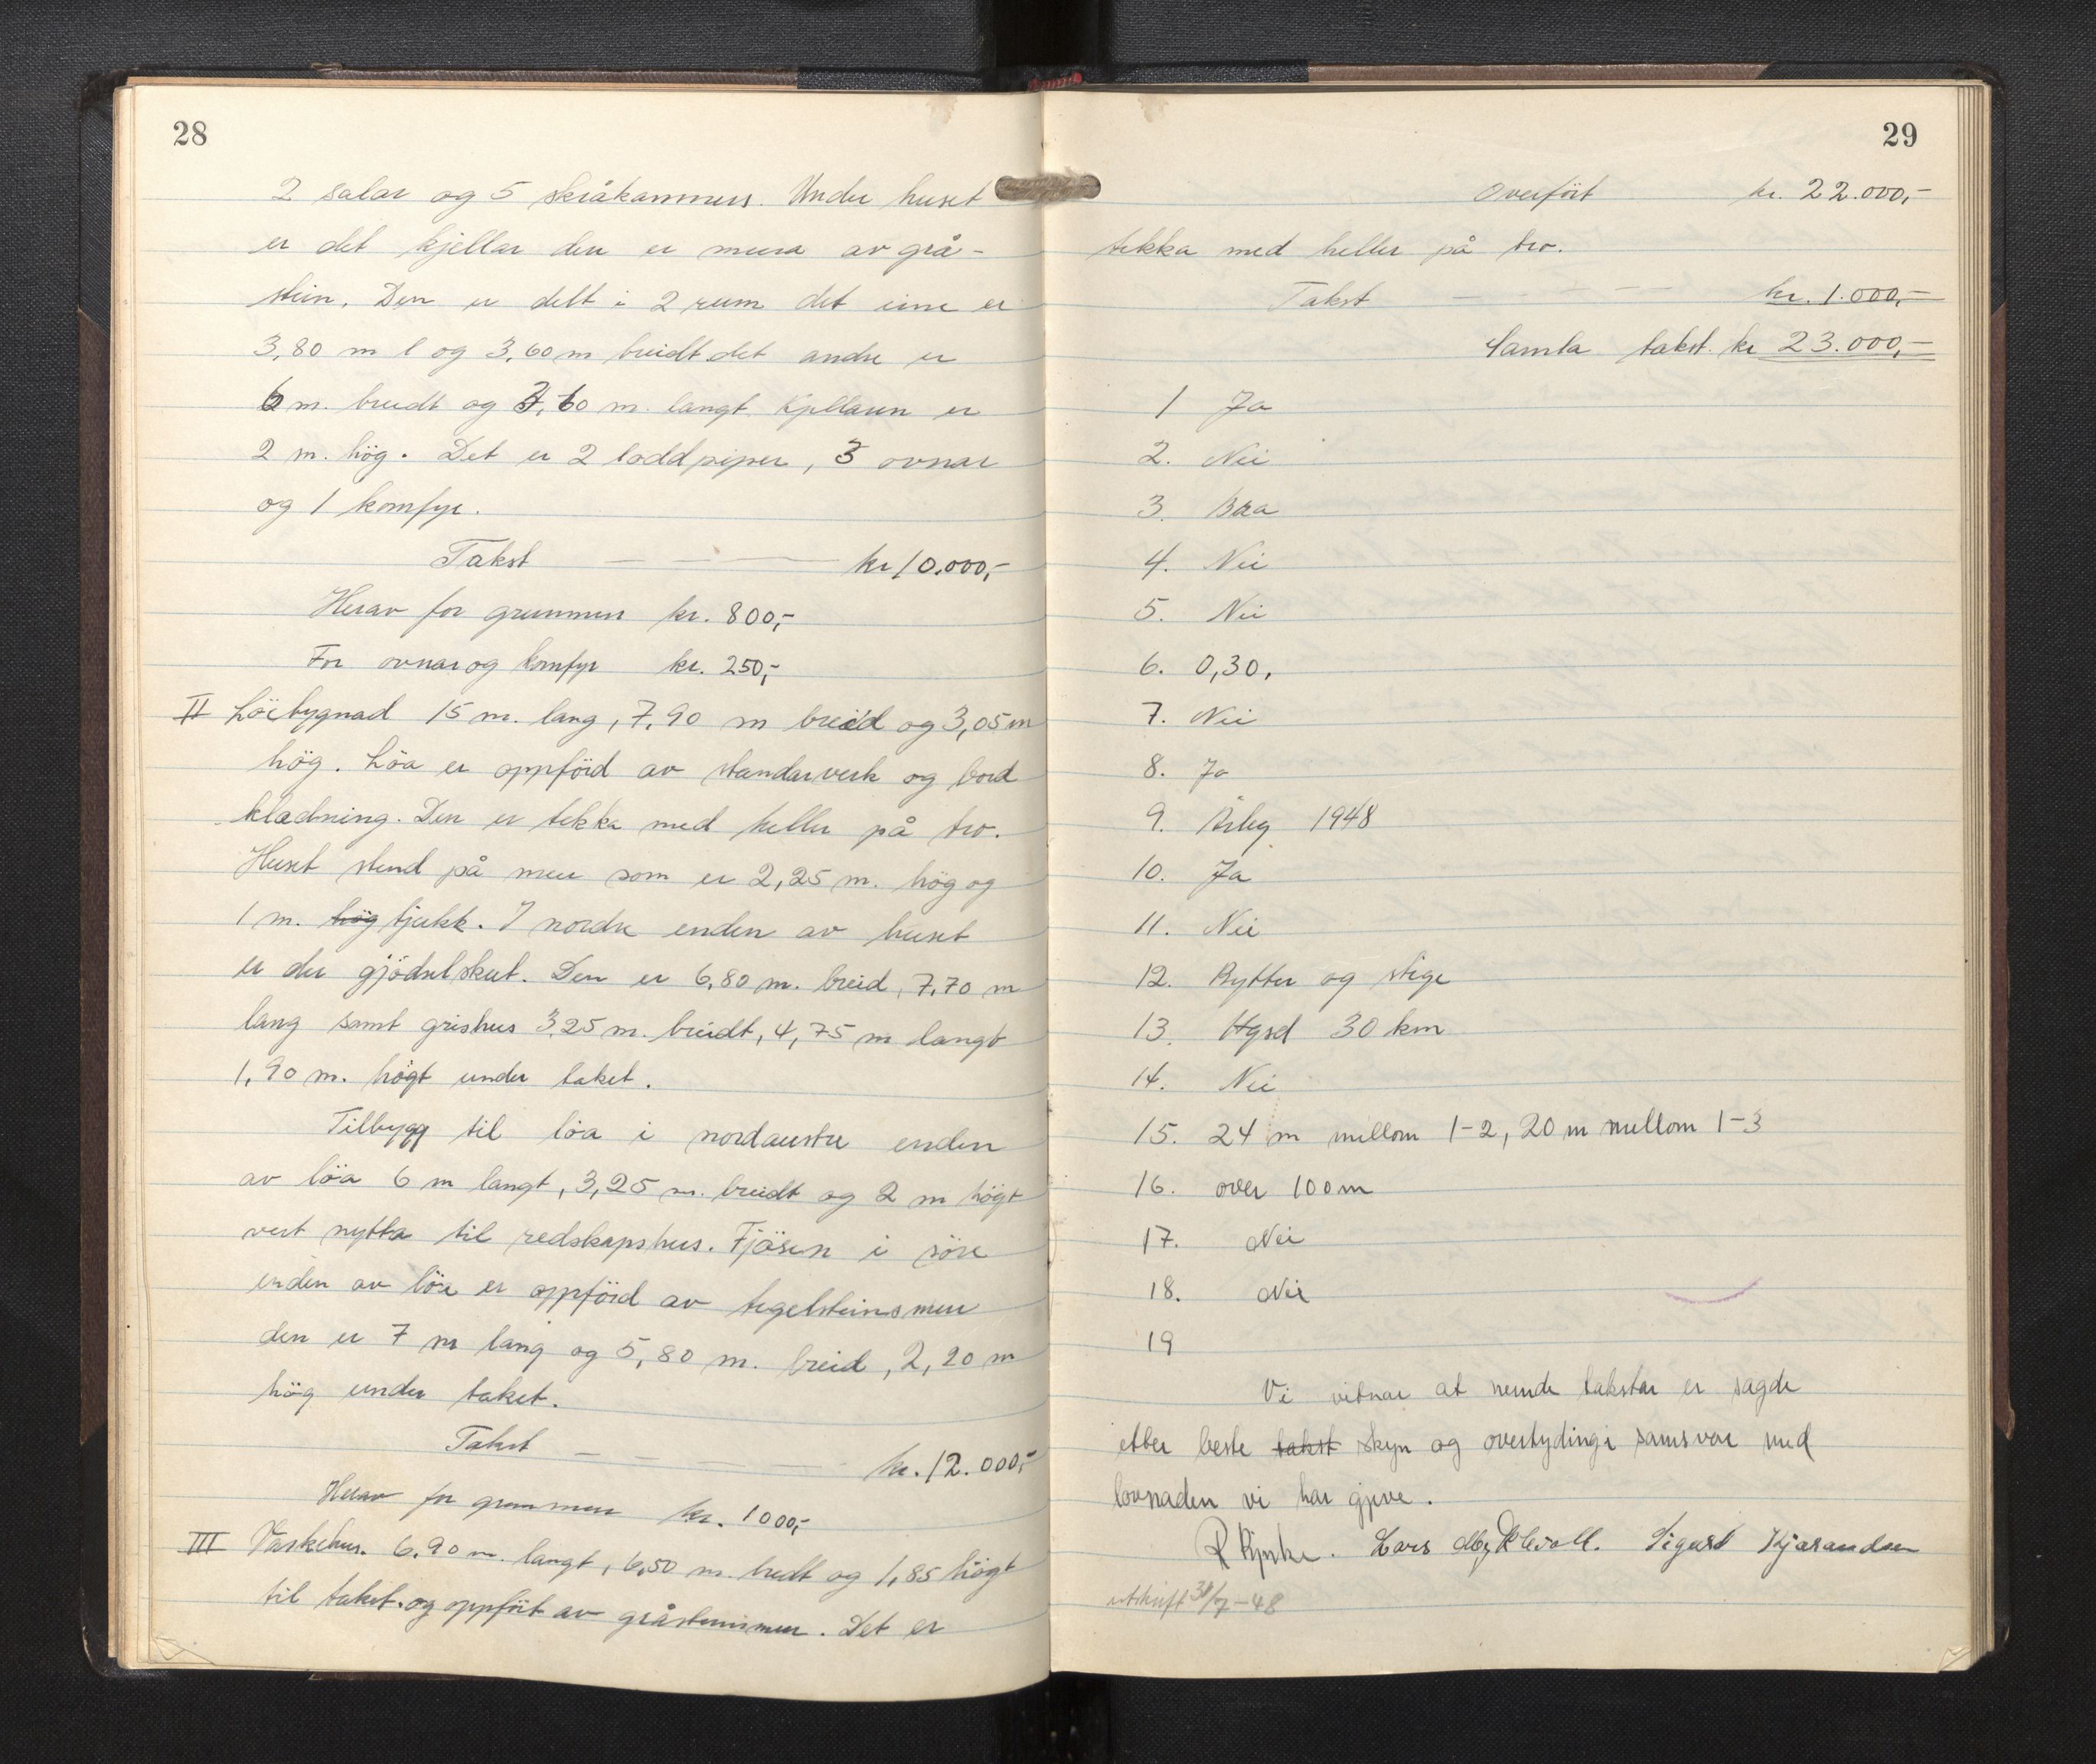 28
2 salar og 5 skråkammers. Under huset
er det kjellar den er mura av grå-
stein. Den er delt i 2 rum det eine er
3,80 m l og 3,60 m breidt det andre er
6 m. breidt og 3,60 m. langt. Kjellaren er
2 m. høg. Det er 2 loddpiper, 3 ovnar
og 1 komfyr.
Takst — — — kr 10.000,-
Herav for grunnmur kr. 800,-
For ovnar og komfyr kr. 250,-
II Löebygnad 15 m. lang, 7,90 m breid og 3,05 m
hög. Löa er oppförd av standarverk og bord
kladning. Den er tekka med heller på tro.
Huset stend på mur som er 2,25 m. hög og
1 m. hög tjukk. I nordre enden av huset
er der gjödselskut. Den er 6,80 m. breid, 7,70 m
lang samt grishus 3,25 m. breidt, 4,75 m langt
1,90 m. högt under taket.
Tilbygg til löa i nordaustre enden
av löa 6 m langt, 3,25 m. breidt og 2 m högt
vert nytta til redskapshus. Fjösen i söre
enden av löa er oppförd av tegelsteinsmur
den er 7 m lang og 5,80 m. breid, 2,20 m
hög under taket.
Takst — — — kr. 12.000,-
Herav for grunnmur kr. 1000,-
III Vaskehus. 6,90 m. langt, 6,50 m. bredt og 1,85 högt
til taket og oppfört av gråsteinsmur. Det er
29
Overfört kr. 22.000,-
tekka med heller på tro.
Takst — — — kr. 1.000,-
Samla takst. kr 23.000,-
1 Ja
2. Nei
3. Bra
4. Nei
5. Nei
6. 0,30,
7. Nei
8. Ja
9. Årleg 1948
10. Ja
11. Nei
12. Bytter og stige
13. Hgsd 30 km
14. Nei
15. 24 m millom 1-2, 20 m millom 1-3
16. over 100 m
17. Nei
18. Nei
19
Vi vitnar at nemde takstar er sagde
etter beste takst skyn og overtyding i samsvar med
lovnaden vi har gjeve.
Lars Myklevoll. Sigurd Kjærandsen
utskrift 31/7-48